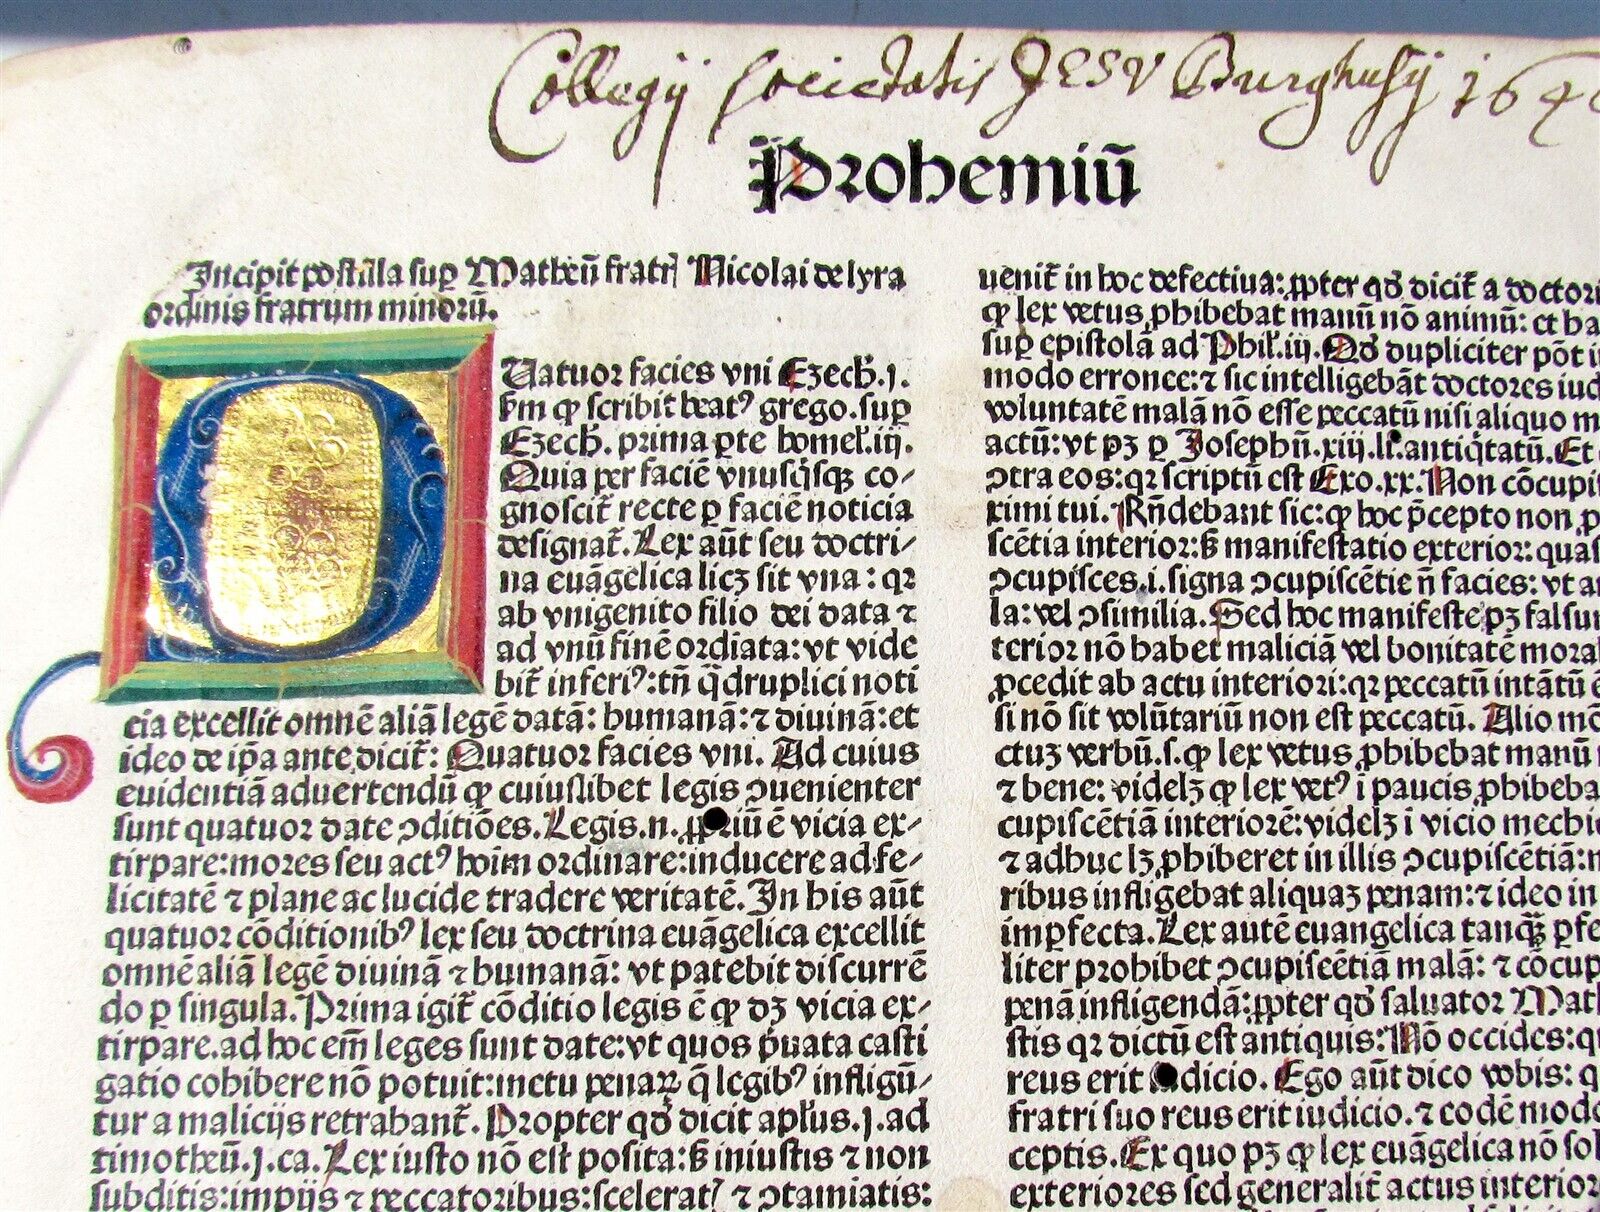 Collegij Societatis JESV Burghusij 164
Prohemiū
Incipit postilla sup Matheū fratr Nicolai de lyra
ordinis fratrum minorū.
QUatuor facies vni Ezech. j.
km ꝙ scribit beatꝰ grego. sup
Ezech. prima pte homel. iij.
Quia per faciē vnusqͥsqꝫ co-
gnoscit̄ recte p faciē noticia
designat̄. Lex aūt seu doctri-
na euāgelica licꝫ sit vna: qꝛ
ab vnigenito filio dei data ⁊
ad vnū finē ordiata: vt vide
bit̄ inferiꝰ: tn̄ qͣdruplici noti
cia excellit omnē aliā legē datā: humanā: ⁊ diuinā: et
ideo de ip̄a ante dicit̄: Quatuor facies vni. Ad cuius
euidentiā aduertendū ꝙ cuiuslibet legis ↄuenienter
sunt quatuor date ↄditiōes. Legis .n. ꝓpriū ē vicia ex-
tirpare: mores seu actꝰ hoīm ordinare: inducere ad fe-
licitatē ⁊ plane ac lucide tradere veritatē. In his aūt
quatuor cōditionibꝰ lex seu doctrina euāgelica excellit
omnē aliā legē diuinā ⁊ humanā: vt patebit discurrē
do ꝑ singula. Prima igit̄ cōditio legis ē ꝙ dꝫ vicia ex-
tirpare. ad hoc em̄ leges sunt date: vt quos pͥuata casti
gatio cohibere nō potuit: metu penaꝝ q̄ legibꝰ infligū-
tur a malicijs retrahant̄. Propter qđ dicit apl̄us .j. ad
timotheū .j. ca. Lex iusto nō est posita: ꝫ iniustis ⁊ non
subditis: impijs ⁊ peccatoribus: scelerat ⁊ ↄtaminatis:
uenit̄ in hoc defectiua: ꝓpter qđ dicit̄ a doctori
ꝙ lex vetus ꝓhibebat manū nō animū: et ha
sup epistolā ad Phil. iij. Qđ dupliciter pōt i
modo erronee: ⁊ sic intelligebāt doctores iud
voluntatē malā nō esse peccatū nisi aliquo m
actū: vt pꝫ p Josephū .xiij. li. antiqͥtatū. Et
ↄtra eos: qꝛ scriptū est Exo. xx. Non cōcupi
ximi tui. Rn̄debant sic: ꝙ hoc p̄cepto non p
scētia interior: ꝫ manifestatio exterior: quas
ↄcupisces .i. signa ↄcupiscētie n̄ facies: vt a
la: vel ↄsimilia. Sed hoc manifeste pꝫ falsum
terior nō habet maliciā vel bonitatē moral
ꝓcedit ab actu interiori: qꝛ peccatū intātū ē
si nō sit volūtariū non est peccatū. Alio mō
ctuꝫ verbū .s. ꝙ lex vetus ꝓhibebat manū
⁊ bene: videlꝫ ꝙ lex vetꝰ ī paucis ꝓhibeba
cupiscētiā interiorē: videlꝫ ī vicio mechi
⁊ adhuc lꝫ ꝓhiberet in illis ↄcupiscētiā: n
ribus infligebat aliquaꝫ penam: ⁊ ideo in
imꝑfecta. Lex autē euangelica tanqꝫ ꝑfe
liter prohibet ↄcupiscētiā malā: ⁊ cōcup
penā infligendā: ꝓpter qđ saluator Mat
stis qꝛ dictū est antiquis: Nō occides: q
reus erit iudicio. Ego aūt dico vobis: q
fratri suo reus erit iudicio. ⁊ eodē modo
ceptis. Ex quo pꝫ ꝙ lex euāgelica nō sol
exteriores sed generalit̄ actus interior